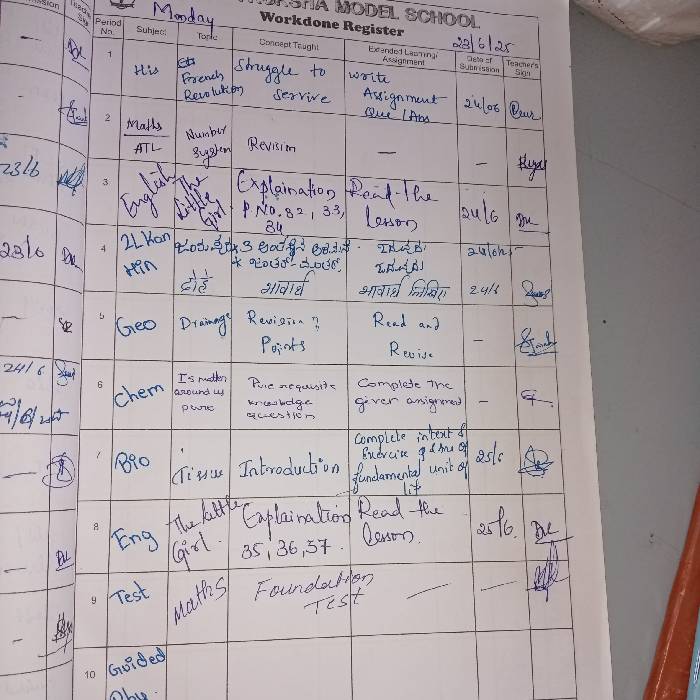 MODEL SCHOOL
Monday
Workdone Register
23/6/25
Period No. Subject Topic Concept Taught Extended Learning/ Assignment Date of Submission Teacher's Sign
1 His French Revolution Struggle to Servive write Assignment Que/Ans 24/06
2 Maths ATL Number System Revision — —
3 English The Little Girl. Explaination P.No. 32, 33, 34 Read the lesson 24/6
4 2L Kan
Hin दोहे भावार्थ भावार्थ लिखिए 24/6
5 Geo Drainage Revision Points Read and Revise —
6 Chem Is matter around us pure Pre requisite knowledge question Complete the given assignment —
7 Bio Tissue Introduction Complete intext & Exercise Q & Ans of fundamental unit of lif 25/6
8 Eng The Little Girl. Explaination 35, 36, 37. Read the lesson. 25/6.
9 Test Maths Foundation Test — —
10 Guided
23/6
23/6
24/6